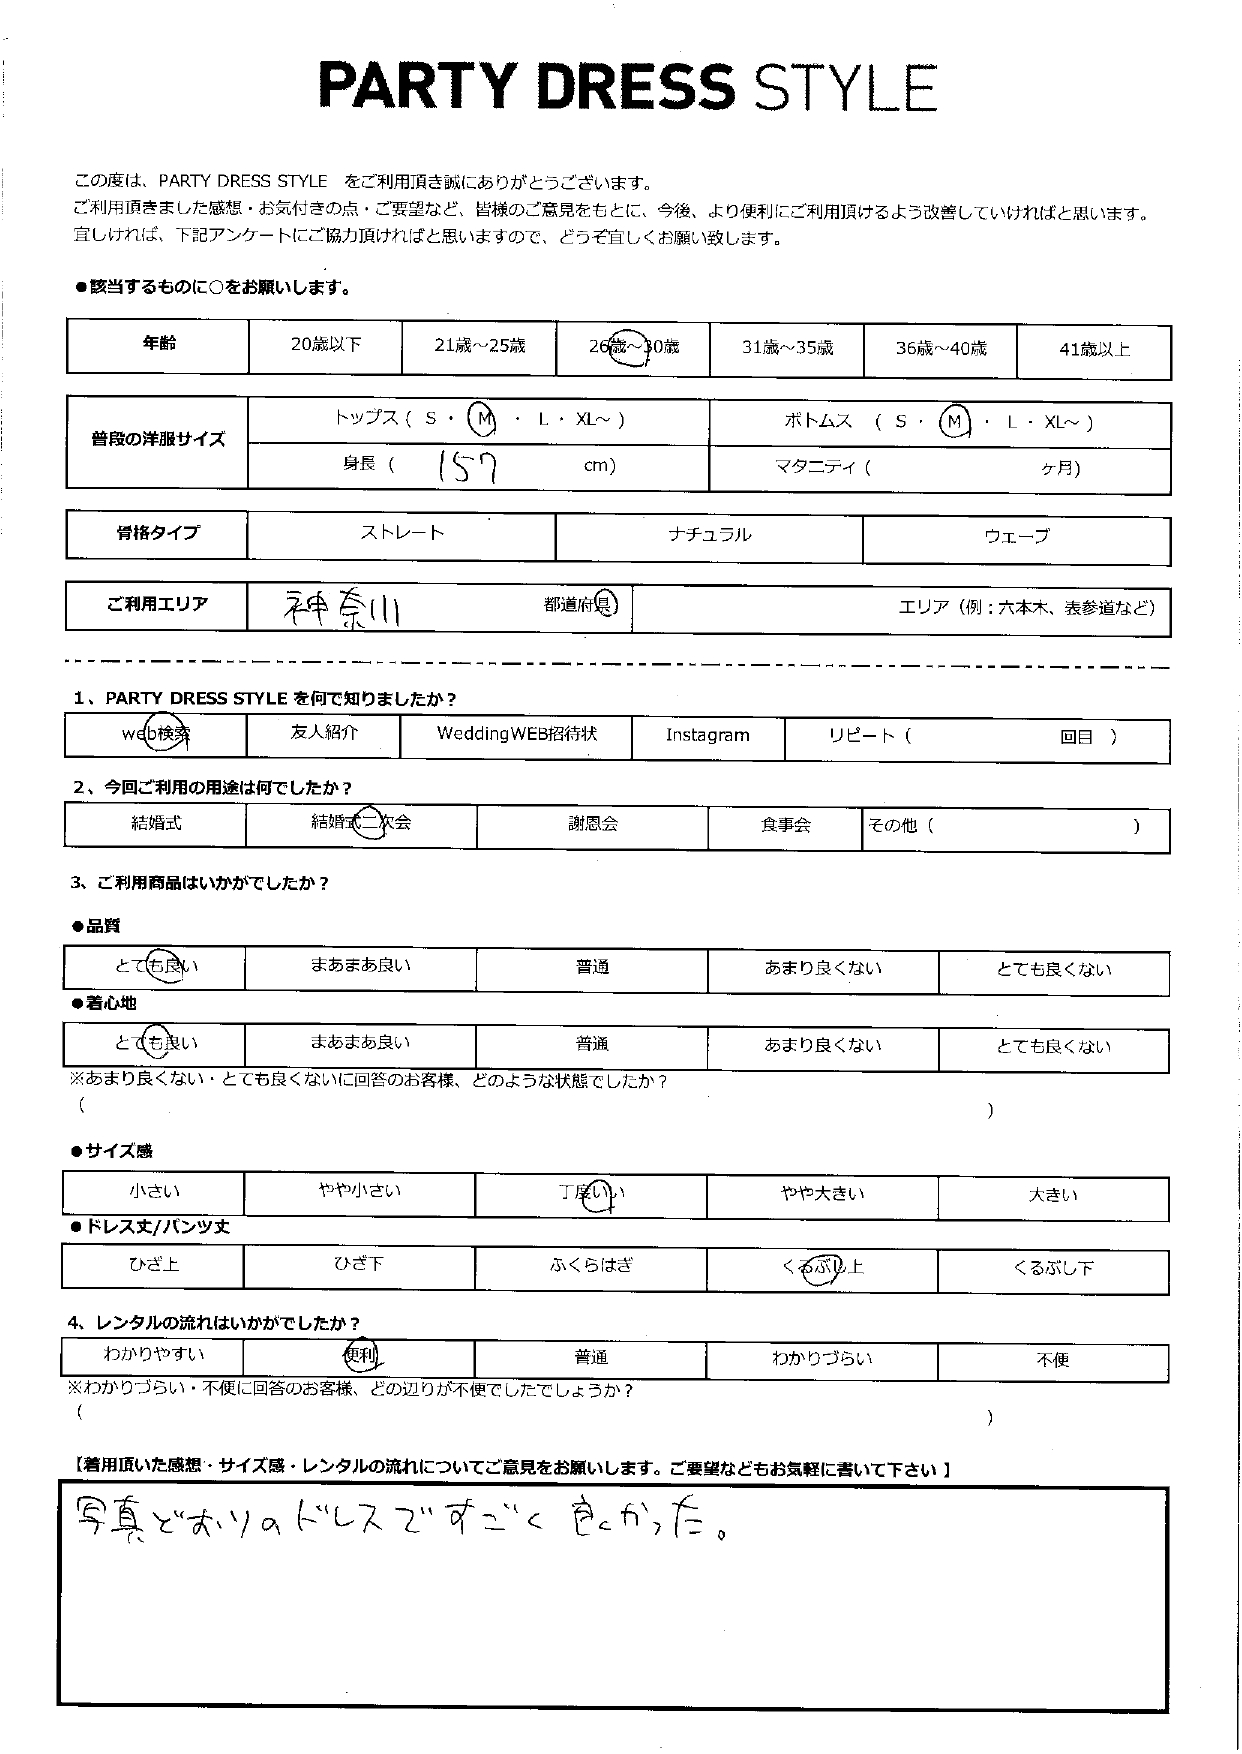 PARTY DRESS STYLE
この度は、PARTY DRESS STYLE をご利用頂き誠にありがとうございます。
ご利用頂きました感想・お気付きの点・ご要望など、皆様のご意見をもとに、今後、より便利にご利用頂けるよう改善していければと思います。
宜しければ、下記アンケートにご協力頂ければと思いますので、どうぞ宜しくお願い致します。
●該当するものに○をお願いします。
年齢 20歳以下 21歳～25歳 26歳～30歳 31歳～35歳 36歳～40歳 41歳以上
普段の洋服サイズ トップス ( S ・ M ・ L ・ XL～ ) ボトムス ( S ・ M ・ L ・ XL～ )
身長 ( 157 cm) マタニティ ( ヶ月)
骨格タイプ ストレート ナチュラル ウェーブ
ご利用エリア 神奈川 都道府県 エリア（例：六本木、表参道など）
1、PARTY DRESS STYLE を何で知りましたか？
web検索 友人紹介 WeddingWEB招待状 Instagram リピート ( 回目 )
2、今回ご利用の用途は何でしたか？
結婚式 結婚式二次会 謝恩会 食事会 その他 ( )
3、ご利用商品はいかがでしたか？
●品質
とても良い まあまあ良い 普通 あまり良くない とても良くない
●着心地
とても良い まあまあ良い 普通 あまり良くない とても良くない
※あまり良くない・とても良くないに回答のお客様、どのような状態でしたか？
( )
●サイズ感
小さい やや小さい 丁度いい やや大きい 大きい
●ドレス丈/パンツ丈
ひざ上 ひざ下 ふくらはぎ くるぶし上 くるぶし下
4、レンタルの流れはいかがでしたか？
わかりやすい 便利 普通 わかりづらい 不便
※わかりづらい・不便に回答のお客様、どの辺りが不便でしたでしょうか？
( )
【着用頂いた感想・サイズ感・レンタルの流れについてご意見をお願いします。ご要望などもお気軽に書いて下さい】
写真どおりのドレスですごく良かった。